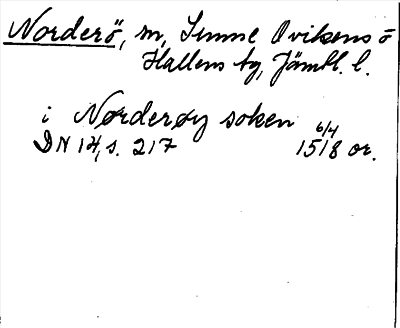 Norderö, sn, Sunne, Ovikens o
Hallens tg, Jämtl. l.
i Nørderøy soken
DN 14, s. 217 6/4 1518 or.